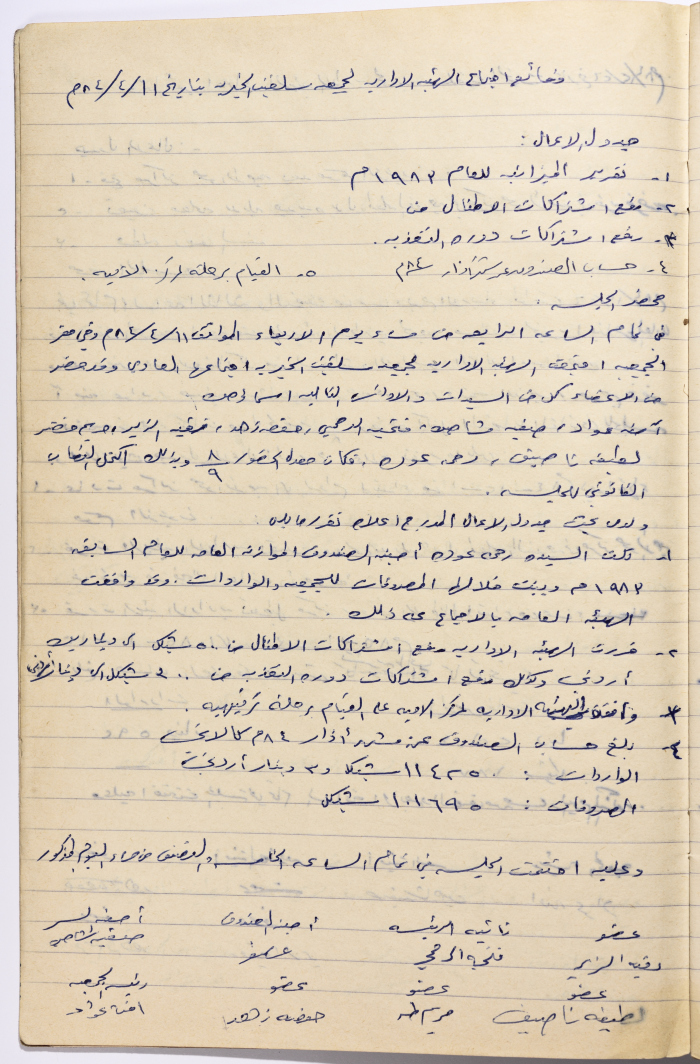 وقائع اجتماع الهيئه الاداريه لجمعيه سلفيت الخيريه بتاريخ ١١/٤/٨٤م
جدول الاعمال :
١- تقرير الميزانيه للعام ١٩٨٣م
٢- رفع اشتراكات الاطفال من
٣- رفع اشتراكات دوره التغذيه .
٤- حساب الصندوق عن شهر اذار ٨٤م ٥- القيام برحله لمركز الاميه .
محضر الجلسه :
في تمام الساعه الرابعه من مساء يوم الاربعاء الموافق ١١/٤/٨٤م وفي مقر
الجمعيه اجتمعت الهيئه الاداريه لجمعيه سلفيت الخيريه اجتماعها العادي وقد حضر
من الاعضاء كل من السيدات والاوانس التاليه اسماؤهن
آمنه عواد ، صفيه شاهين ، فتحيه الدحمي ، حفصه زهد ، رقيه الزير ، مريم خضر
لطيفه ناصيف ، رحمه عوده . فكان معدل الحضور ٨/٩ وبذلك اكتمل النصاب
القانوني للجلسه .
ولدى بحث جدول الاعمال المدرج اعلاه تقرر ما يلي :
١- تلت السيده رحمه عوده أمينه الصندوق الموازنه العامه للعام السابقه
١٩٨٣م وبينت خلالها المصروفات للجمعيه والواردات . وقد وافقت
الهيئه العامه بالاجماع على ذلك .
٢- قررت الهيئه الاداريه رفع اشتراكات الاطفال من ٥٠٠ شيكل الى دينارين
أردني وكذلك رفع اشتراكات دوره التغذيه من شيكل الى دينار أردني
٣- وافقت الهيئه الاداريه لمركز الاميه على القيام برحله ترفيهيه .
٤- بلغ حساب الصندوق عن شهر أذار ٨٤م كالاتي
الواردات : ١١٤٢٥٠ شيكل و٣ دينار أردني
المصروفات : ١٠١٦٩٥ شيكل
وعليه اختتمت الجلسه في تمام الساعه الخامسه والنصف من مساء اليوم المذكور
عضو نائبه الرئيسه أمينه الصندوق أمينه السر
رقيه الزير فتحيه الدحمي عضو صفيه شاهين
عضو عضو عضو رئيسه الجمعيه
لطيفه ناصيف مريم طه حفصه زهد امنه عواد